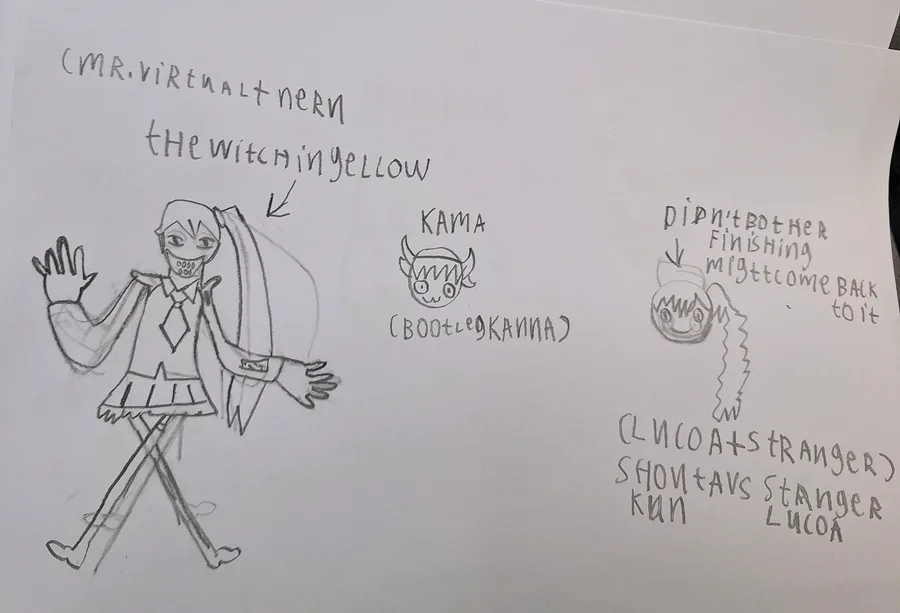 (MR.ViRtuALt neRn
tHe WitCHinyeLLOW
KAMA
(BOOtLegKANNA)
DiDn'tBOtHeR
FiniSHing
MigttCOMe BACK
tO it
(LUCOAtStRAngeR)
SHOUtAVS StAngeR
KUN LUCOA